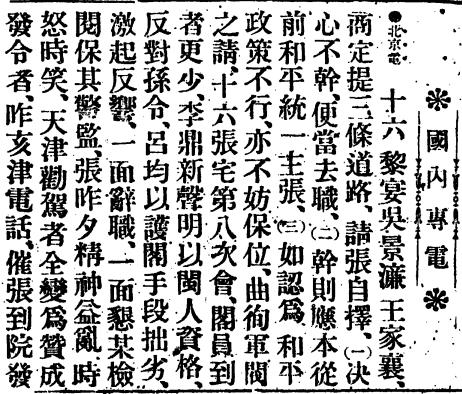 ❋國內專電❋
●北京電 十六黎宴吳景濂王家襄、
商定提三條道路、請張自擇、㈠决
心不幹、便當去職、㈡幹則應本從
前和平統一主張、㈢如認爲和平
政策不行、亦不妨保位、曲徇軍閥
之請、十六張宅第八次會、閣員到
者更少、李鼎新聲明以閩人資格、
反對孫令、呂均以護閣手段拙劣、
激起反響、一面辭職、一面懇某檢
閱保其警監、張昨夕精神益亂、時
怒時笑、天津勸駕者全變爲贊成
發令者、昨亥津電話、催張到院發